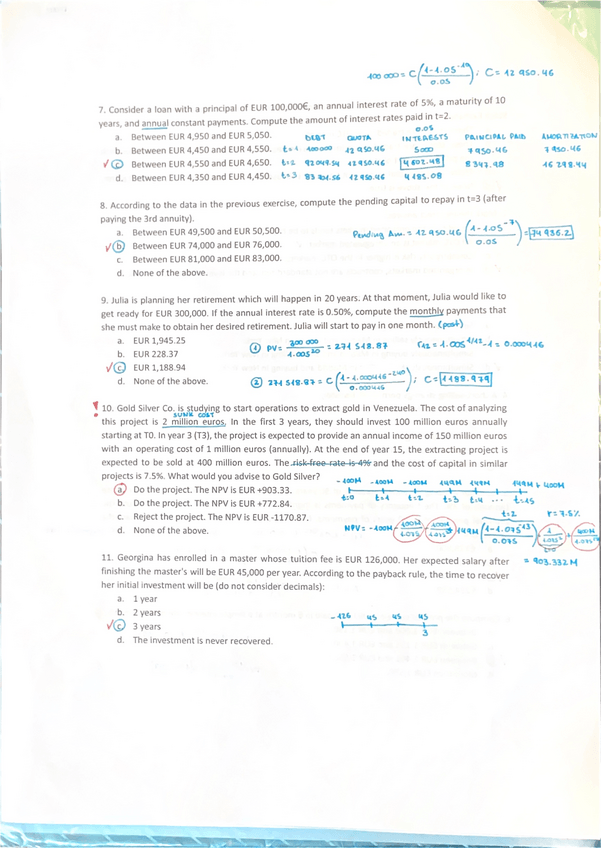 100 000 = C (1-1.05^-10 / 0.05) ; C = 12 950.46
7. Consider a loan with a principal of EUR 100,000€, an annual interest rate of 5%, a maturity of 10
years, and annual constant payments. Compute the amount of interest rates paid in t=2.
0.05
a. Between EUR 4,950 and EUR 5,050. DEBT QUOTA INTERESTS PRINCIPAL PAID AMORTIZATION
b. Between EUR 4,450 and EUR 4,550. t=1 100 000 12 950.46 5000 7 950.46 7 950.46
√ c. Between EUR 4,550 and EUR 4,650. t=2 92 049.54 12 950.46 4 602.48 8 347.98 16 298.44
d. Between EUR 4,350 and EUR 4,450. t=3 83 701.56 12 950.46 4 185.08
8. According to the data in the previous exercise, compute the pending capital to repay in t=3 (after
paying the 3rd annuity).
a. Between EUR 49,500 and EUR 50,500.
√ b. Between EUR 74,000 and EUR 76,000. Pending Am. = 12 950.46 (1-1.05^-7 / 0.05) = 74 936.2
c. Between EUR 81,000 and EUR 83,000.
d. None of the above.
9. Julia is planning her retirement which will happen in 20 years. At that moment, Julia would like to
get ready for EUR 300,000. If the annual interest rate is 0.50%, compute the monthly payments that
she must make to obtain her desired retirement. Julia will start to pay in one month. (post)
a. EUR 1,945.25 ① PV = 300 000 / 1.005^20 = 271 518.87 r12 = 1.005^1/12 - 1 = 0.000416
b. EUR 228.37
√ c. EUR 1,188.94
d. None of the above. ② 271 518.87 = C (1-1.000416^-240 / 0.000416) ; C = 1188.979
! 10. Gold Silver Co. is studying to start operations to extract gold in Venezuela. The cost of analyzing
SUNK COST
this project is 2 million euros. In the first 3 years, they should invest 100 million euros annually
starting at T0. In year 3 (T3), the project is expected to provide an annual income of 150 million euros
with an operating cost of 1 million euros (annually). At the end of year 15, the extracting project is
expected to be sold at 400 million euros. The risk-free rate is 4% and the cost of capital in similar
projects is 7.5%. What would you advise to Gold Silver?
-100M -100M -100M 149M 149M 149M + 400M
a. Do the project. The NPV is EUR +903.33.
b. Do the project. The NPV is EUR +772.84. t=0 t=1 t=2 t=3 t=4 ... t=15
c. Reject the project. The NPV is EUR -1170.87. t=2 r = 7.5%
d. None of the above. NPV = -100M - 100M / 1.075 - 100M / 1.075² + 149M (1-1.075^-13 / 0.075) · 1 / 1.075² + 400M
= 903.332M
11. Georgina has enrolled in a master whose tuition fee is EUR 126,000. Her expected salary after
finishing the master's will be EUR 45,000 per year. According to the payback rule, the time to recover
her initial investment will be (do not consider decimals):
a. 1 year
b. 2 years -126 45 45 45
√ c. 3 years
3
d. The investment is never recovered.